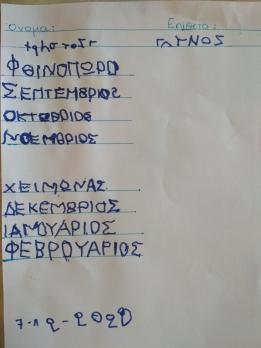 Όνομα: Επίθετο:
ΓΛΥΝΟΣ
ΦΘΙΝΟΠΩΡΟ
ΣΕΠΤΕΜΒΡΙΟΣ
ΟΚΤΩΒΡΙΟΣ
ΝΟΕΜΒΡΙΟΣ
ΧΕΙΜΩΝΑΣ
ΔΕΚΕΜΒΡΙΟΣ
ΙΑΝΟΥΑΡΙΟΣ
ΦΕΒΡΟΥΑΡΙΟΣ
7-12-2020